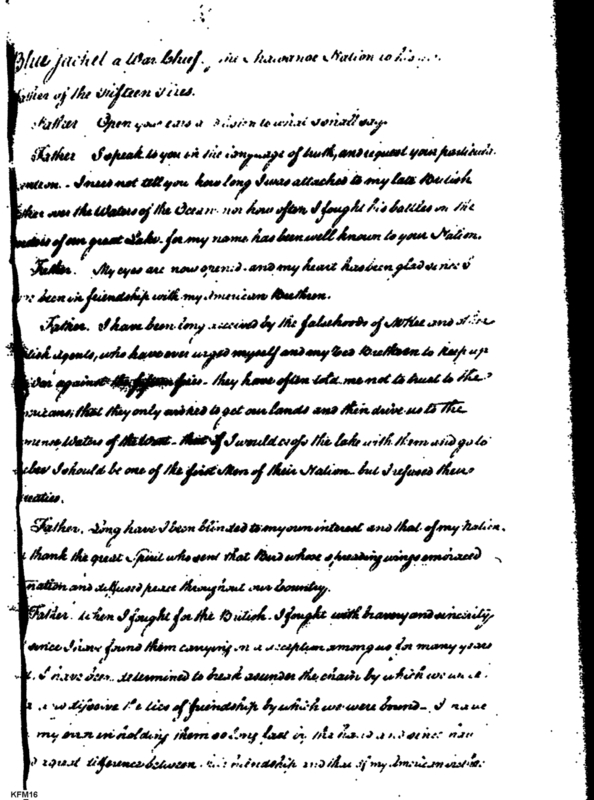 Blue Jacket a War Chief of the Shawanoe Nation to his
Father of the Fifteen Fires.
Father Open your ears and listen to what I shall say
Father I speak to you in the language of truth, and request your particular
attention. - I need not tell you how long I was attached to my late British
Father over the Waters of the Ocean nor how often I fought his battles on the
borders of our great Lake - for my name has been well known to your Nation.
Father. My eyes are now opened - and my heart has been glad since I
have been in friendship with my American Brethren.
Father. I have been long deceived by the falsehoods of McKee and other
British Agents, who have ever urged myself and my Red Brethren to keep up
War against the fifteen fires - they have often told me not to trust to the
Americans; that they only wished to get our lands and then drive us to the
immense Waters of the West - that if I would cross the lake with them and go to
Quebec I should be one of the first Men of their Nation - but I refused their
treaties.
Father. Long have I been blinded to my own interest and that of my Nation.
I thank the great Spirit who sent that Bird whose spreading wings embraced
nation and diffused peace throughout our Country.
Father When I fought for the British - I fought with bravery and sincerity
since I have found them carrying on a deception among us for many years
I have been determined to break asunder the chain by which we were
dissolve the ties of friendship by which we were bound - I have
my own in holding them so long fast in the hand and since
a great difference between their friendship and that of my American
KFM16